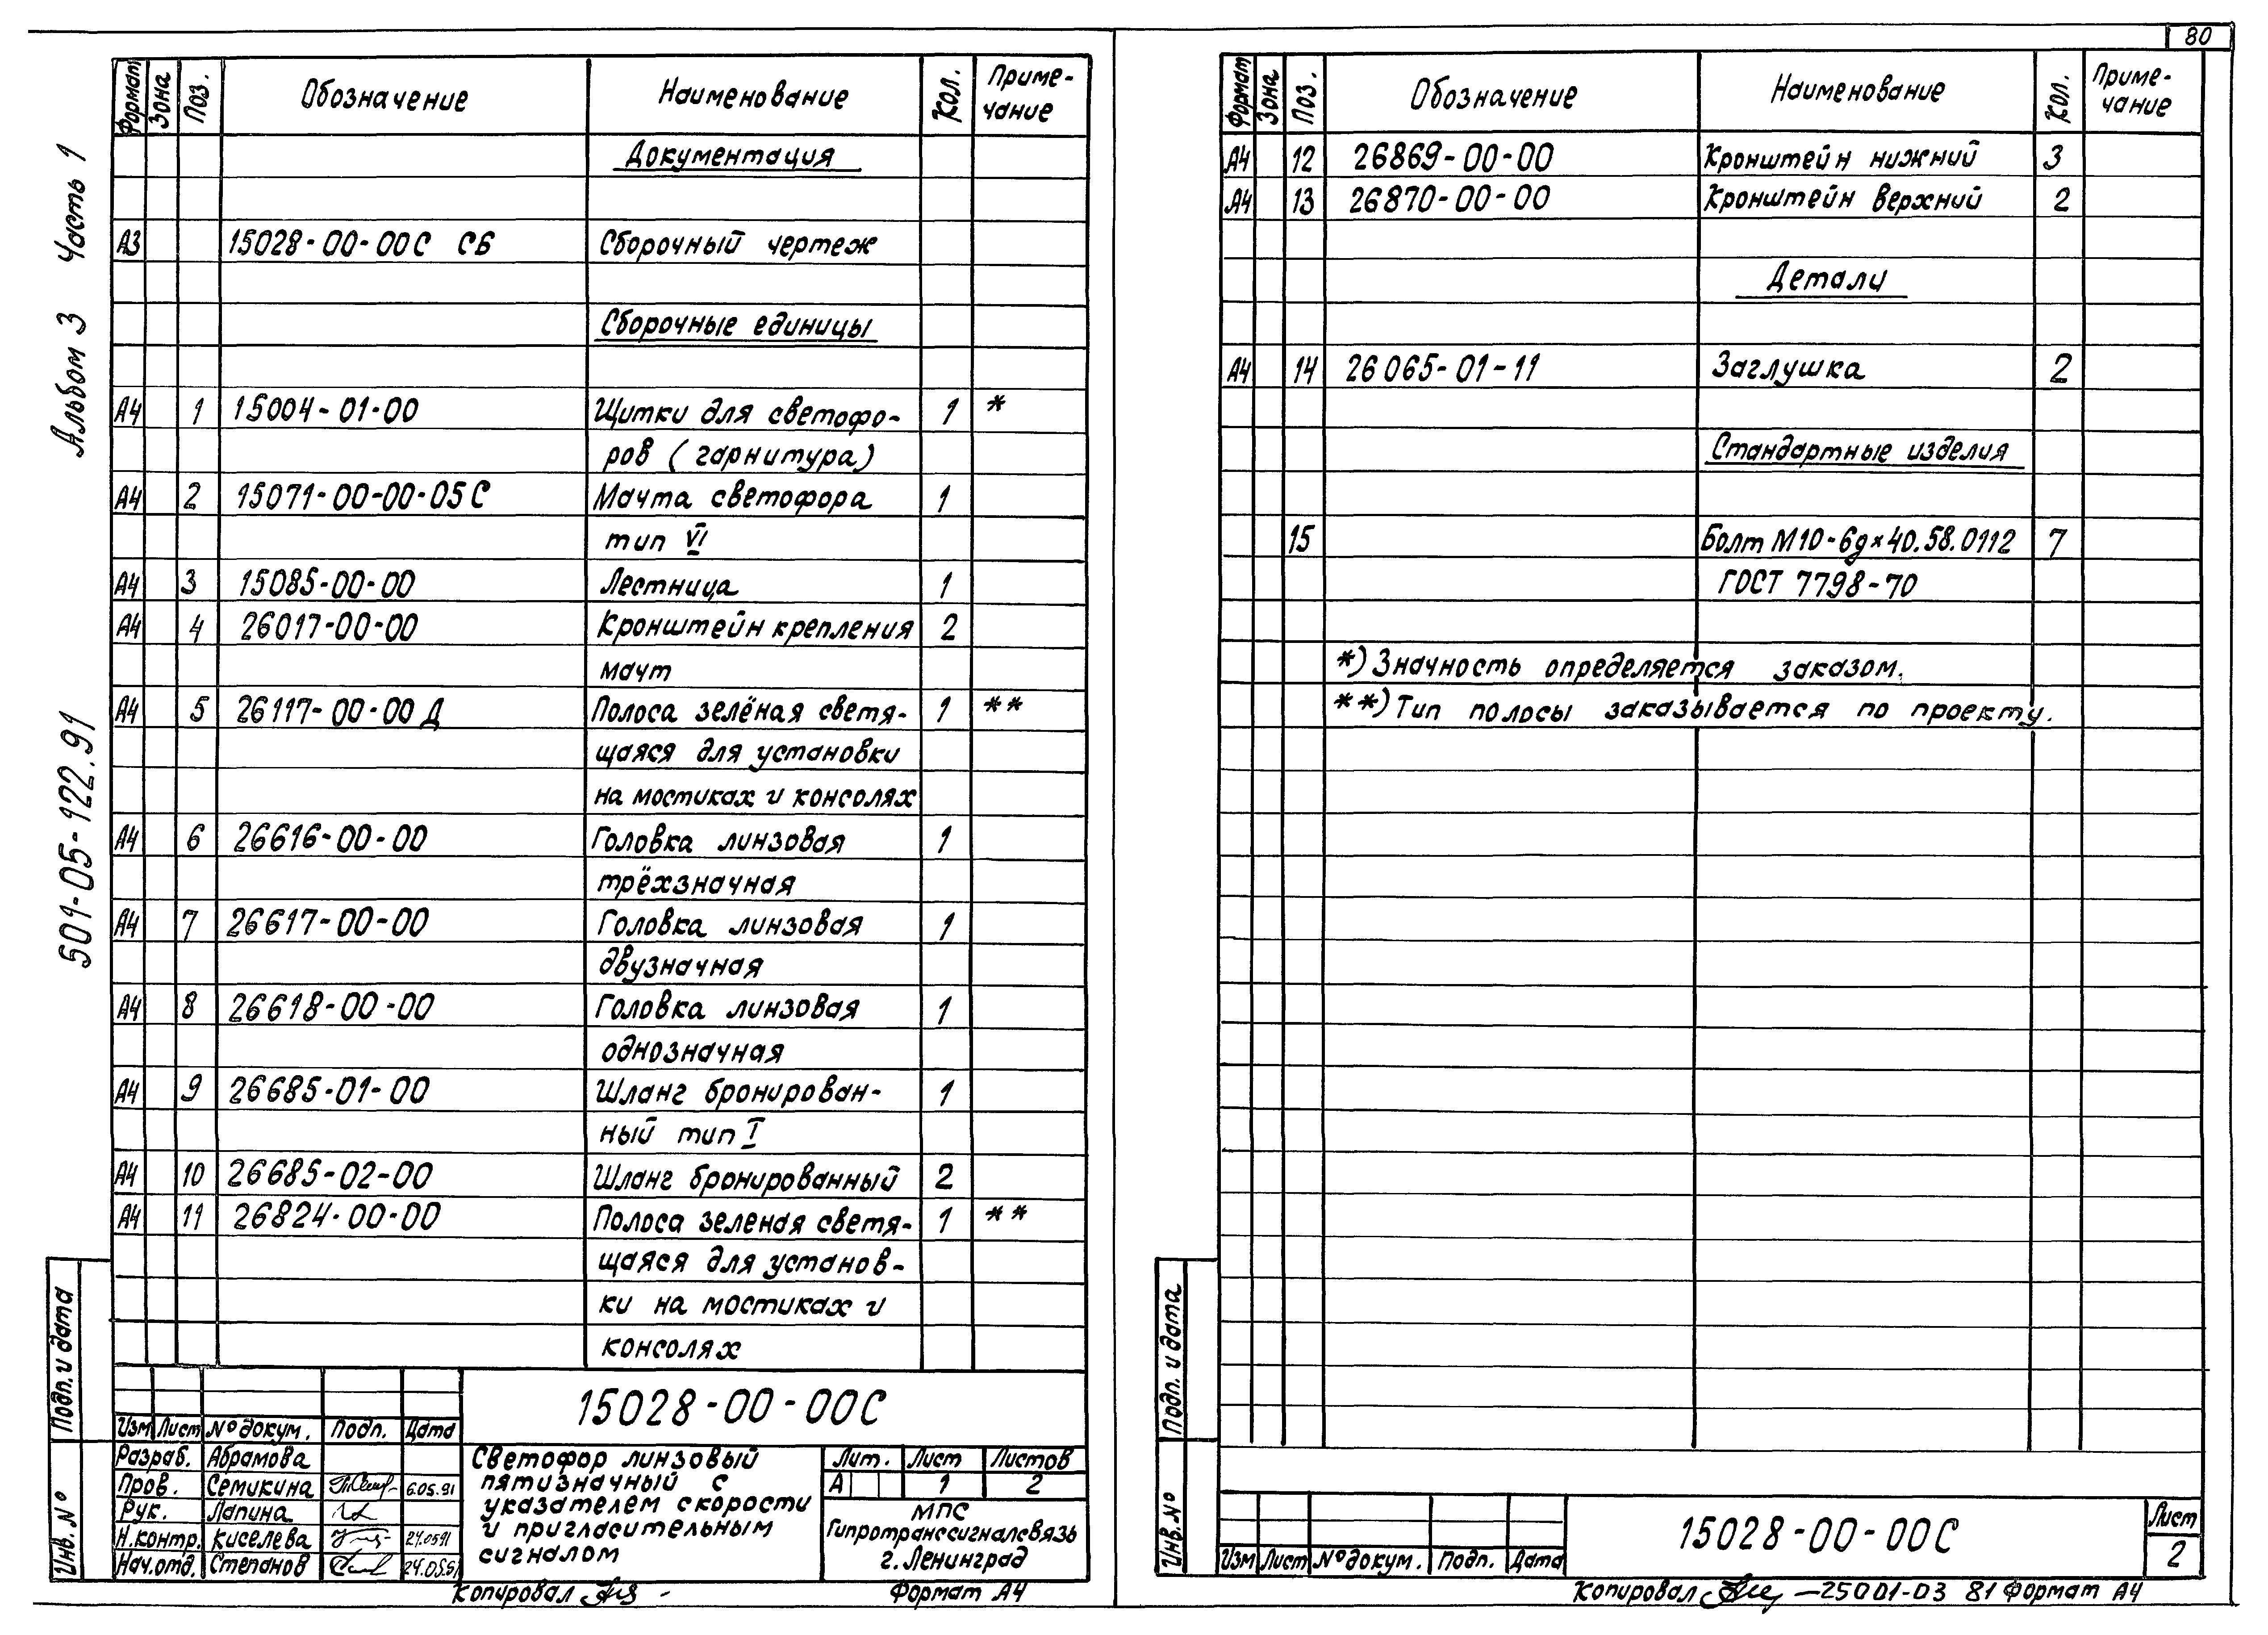 80
Альбом 3 Часть 1
501-05-122.91
Формат Зона Поз. Обозначение Наименование Кол. Приме-
чание
Документация
А3 15028-00-00С СБ Сборочный чертеж
Сборочные единицы
А4 1 15004-01-00 Щитки для светофо- 1 *
ров (гарнитура)
А4 2 15071-00-00-05С Мачта светофора 1
тип VI
А4 3 15085-00-00 Лестница 1
А4 4 26017-00-00 Кронштейн крепления 2
мачт
А4 5 26117-00-00Д Полоса зелёная светя- 1 **
щаяся для установки
на мостиках и консолях
А4 6 26616-00-00 Головка линзовая 1
трёхзначная
А4 7 26617-00-00 Головка линзовая 1
двузначная
А4 8 26618-00-00 Головка линзовая 1
однозначная
А4 9 26685-01-00 Шланг бронирован- 1
ный тип I
А4 10 26685-02-00 Шланг бронированный 2
А4 11 26824-00-00 Полоса зеленая светя- 1 **
щаяся для установ-
ки на мостиках и
консолях
Подп. и дата
Инв. №
15028-00-00С
Изм Лист № докум. Подп. Дата
Разраб. Абрамова
Пров. Семикина 6.05.91
Рук. Лапина
Н.контр. Киселева 24.0591
Нач.отд. Степанов 24.05.91
Светофор линзовый
пятизначный с
указателем скорости
и пригласительным
сигналом
Лит. Лист Листов
А 1 2
МПС
Гипротранссигналсвязь
г. Ленинград
Копировал Формат А4
Формат Зона Поз. Обозначение Наименование Кол. Приме-
чание
А4 12 26869-00-00 Кронштейн нижний 3
А4 13 26870-00-00 Кронштейн верхний 2
Детали
А4 14 26065-01-11 Заглушка 2
Стандартные изделия
15 Болт М10-6g×40.58.0112 7
ГОСТ 7798-70
*) Значность определяется заказом.
**) Тип полосы заказывается по проекту.
Подп. и дата
Инв. №
Изм Лист № докум. Подп. Дата
15028-00-00С
Лист
2
Копировал 25001-03 81 Формат А4